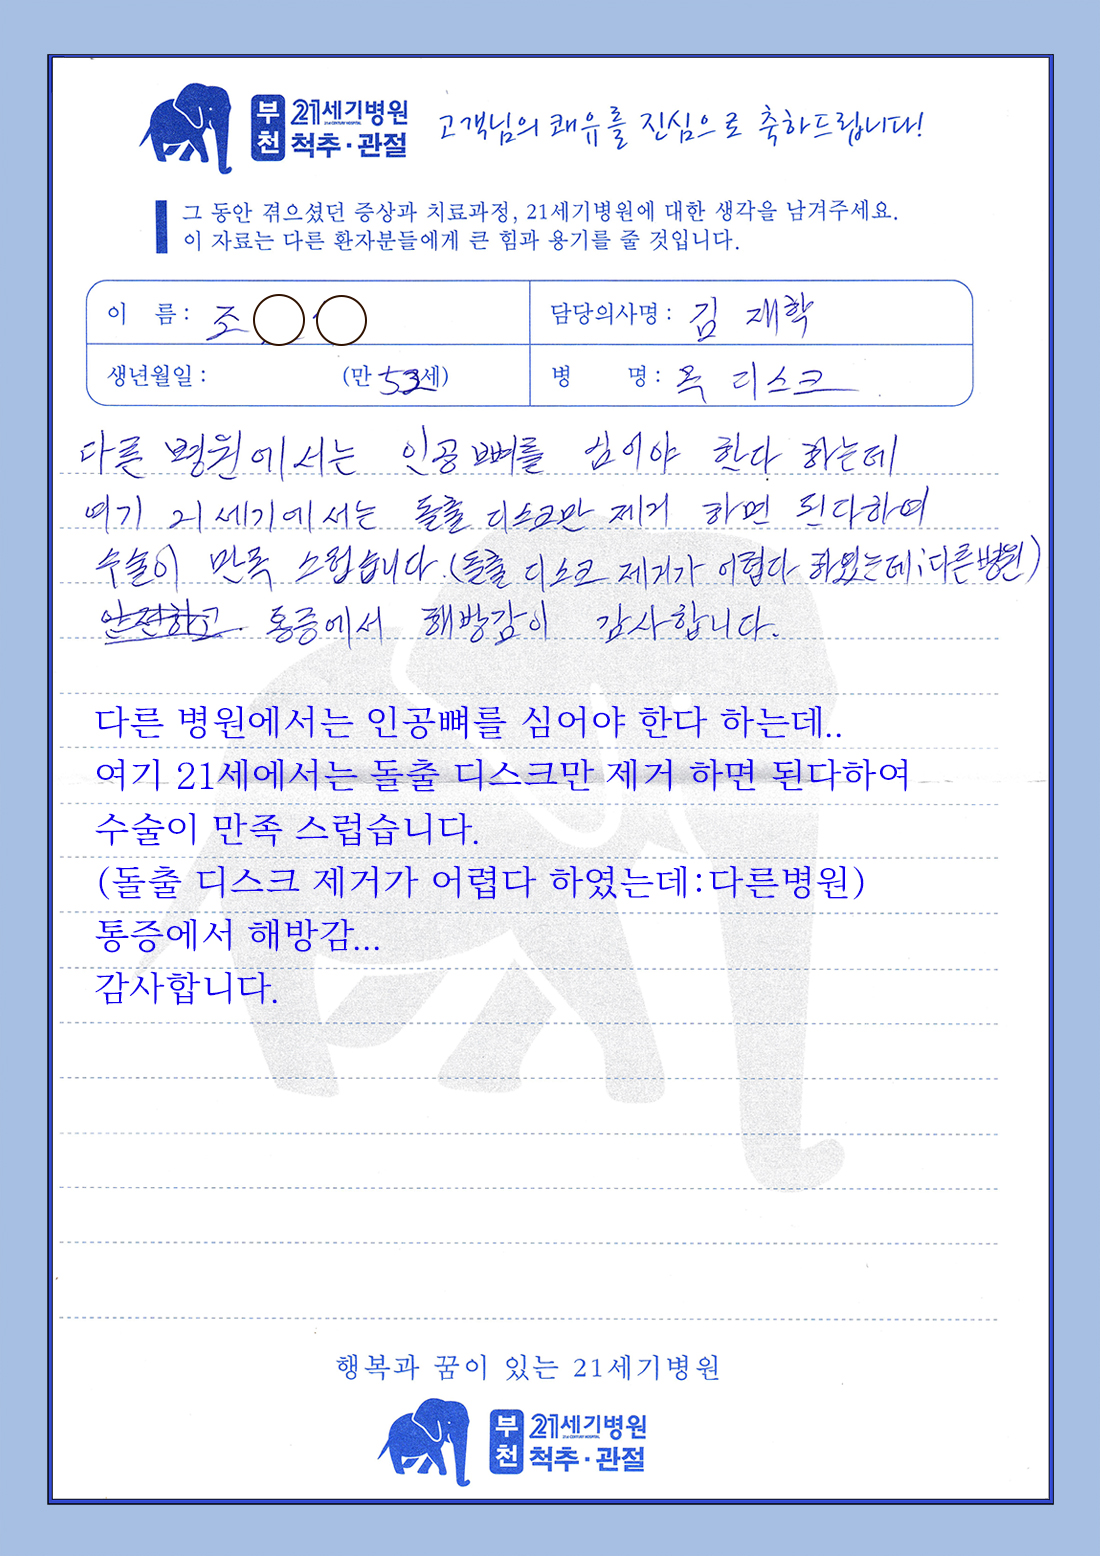 부천 21세기병원
21st CENTURY HOSPITAL
척추·관절
고객님의 쾌유를 진심으로 축하드립니다!
그 동안 겪으셨던 증상과 치료과정, 21세기병원에 대한 생각을 남겨주세요.
이 자료는 다른 환자분들에게 큰 힘과 용기를 줄 것입니다.
이 름 : 조
담당의사명 : 김 재학
생년월일 : (만 53세)
병 명 : 목 디스크
다른 병원에서는 인공뼈를 심어야 한다 하는데
여기 21세기에서는 돌출 디스크만 제거 하면 된다하여
수술이 만족 스럽습니다. (돌출 디스크 제거가 어렵다 하였는데:다른병원)
안전하고 통증에서 해방감이 감사합니다.
다른 병원에서는 인공뼈를 심어야 한다 하는데..
여기 21세에서는 돌출 디스크만 제거 하면 된다하여
수술이 만족 스럽습니다.
(돌출 디스크 제거가 어렵다 하였는데:다른병원)
통증에서 해방감...
감사합니다.
행복과 꿈이 있는 21세기병원
부천 21세기병원
21st CENTURY HOSPITAL
척추·관절